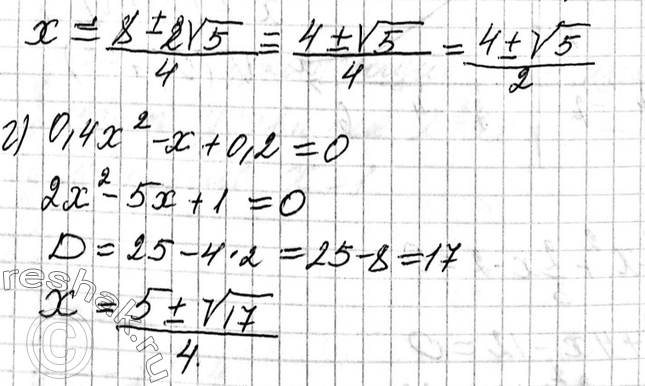 x = (8 ± 2√5)/4 = (4 ± √5)/4 = (4 ± √5)/2
г) 0,4x² - x + 0,2 = 0
2x² - 5x + 1 = 0
D = 25 - 4·2 = 25 - 8 = 17
x = (5 ± √17)/4.
©reshak.ru